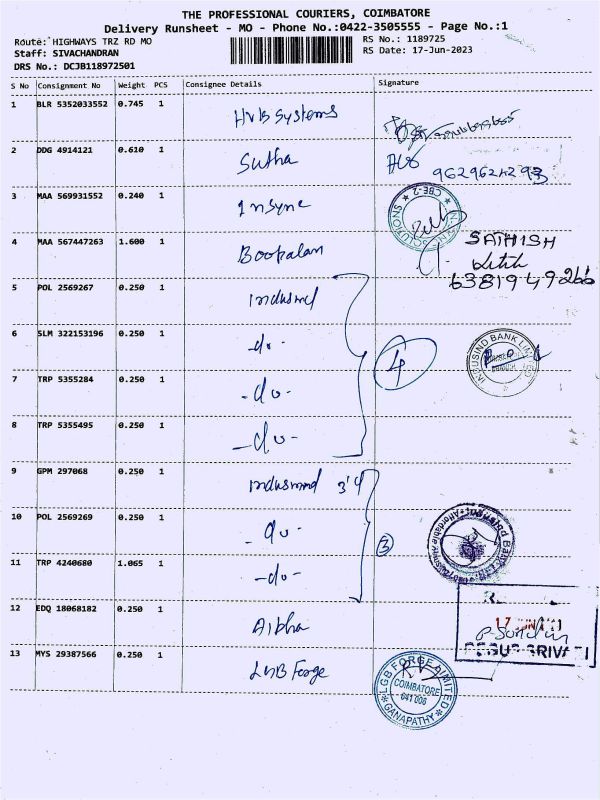 THE PROFESSIONAL COURIERS, COIMBATORE
Delivery Runsheet - MO - Phone No.:0422-3505555 - Page No.:1
Route: HIGHWAYS TRZ RD MO
RS No.: 1189725
Staff: SIVACHANDRAN
RS Date: 17-Jun-2023
DRS No.: DCJB118972501
S No Consignment No Weight PCS Consignee Details Signature
1 BLR 5352033552 0.745 1 HVB Systems
2 DDG 4914121 0.610 1 Sutha
9629624293
3 MAA 569931552 0.240 1 Insync
CBE-2
4 MAA 567447263 1.600 1 Boopalan
SATHISH
6381949266
5 POL 2569267 0.250 1 Indusind
6 SLM 322153196 0.250 1 -do-
4
INDUSIND BANK LIMITED
7 TRP 5355284 0.250 1 -do-
8 TRP 5355495 0.250 1 -do-
9 GPM 297068 0.250 1 Indusind 3'd
10 POL 2569269 0.250 1 -do-
3
11 TRP 4240680 1.065 1 -do-
12 EDQ 18068182 0.250 1
17 JUN
13 MYS 29387566 0.250 1 LGB Forge
LGB FORGE LIMITED
COIMBATORE
641 006
GANAPATHY